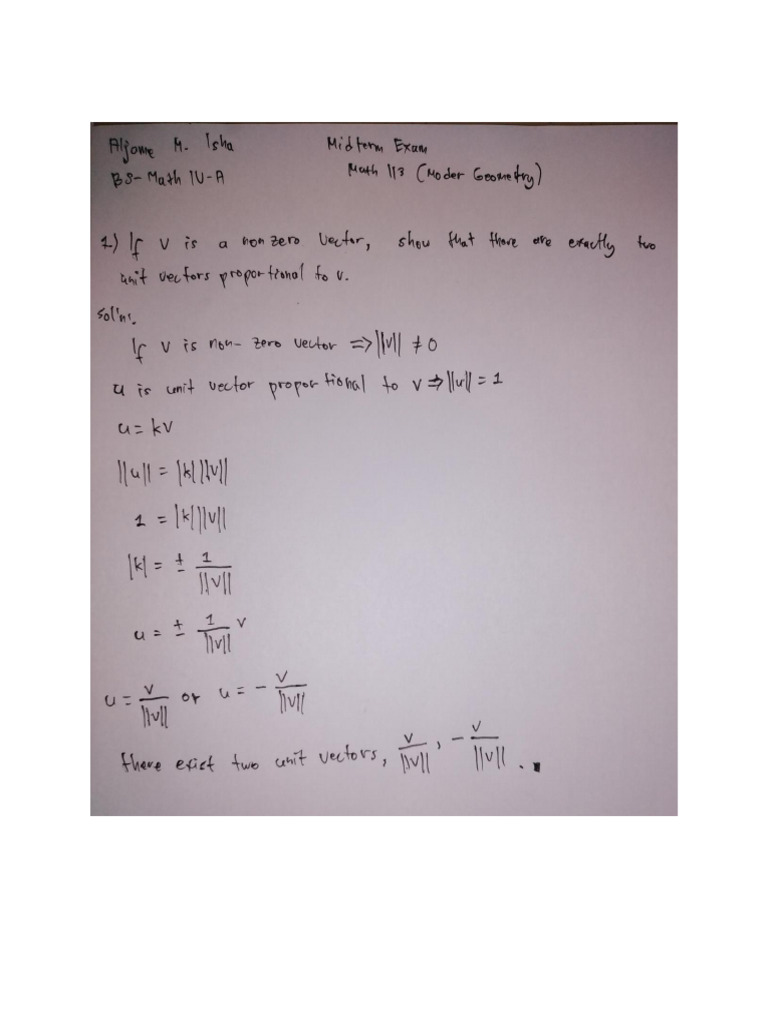 Aljome M. Isha Midterm Exam
BS-Math IV-A Math 113 (Moder Geometry)
1) If v is a nonzero vector, show that there are exactly two
unit vectors proportional to v.
Sol'n:
If v is non-zero vector ⇒ ||v|| ≠ 0
u is unit vector proportional to v ⇒ ||u|| = 1
u = kv
||u|| = |k| ||v||
1 = |k| ||v||
|k| = ± 1/||v||
u = ± 1/||v|| v
u = v/||v|| or u = - v/||v||
there exist two unit vectors, v/||v||, - v/||v||. ∎